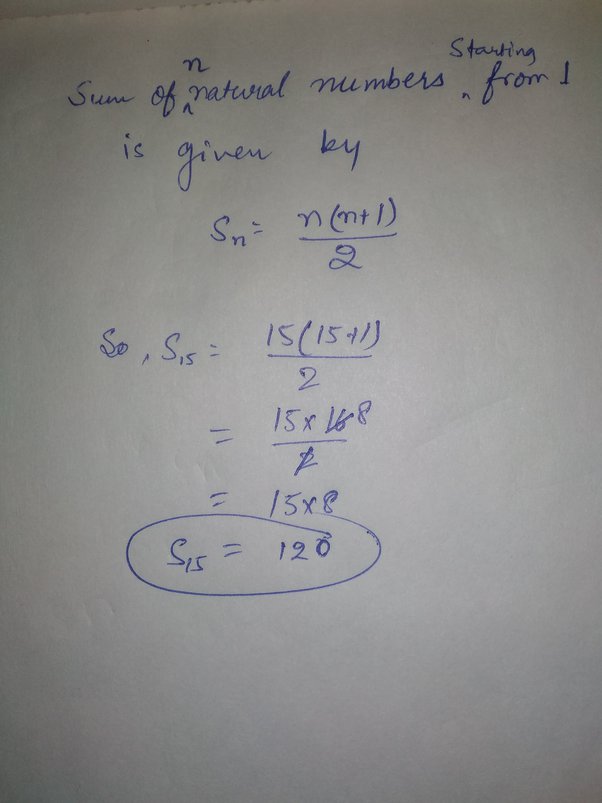 Sum of n natural numbers starting from 1
is given by
Sn = n(n+1)
2
So, S15 = 15(15+1)
2
= 15 x 16 8
2
= 15x8
S15 = 120